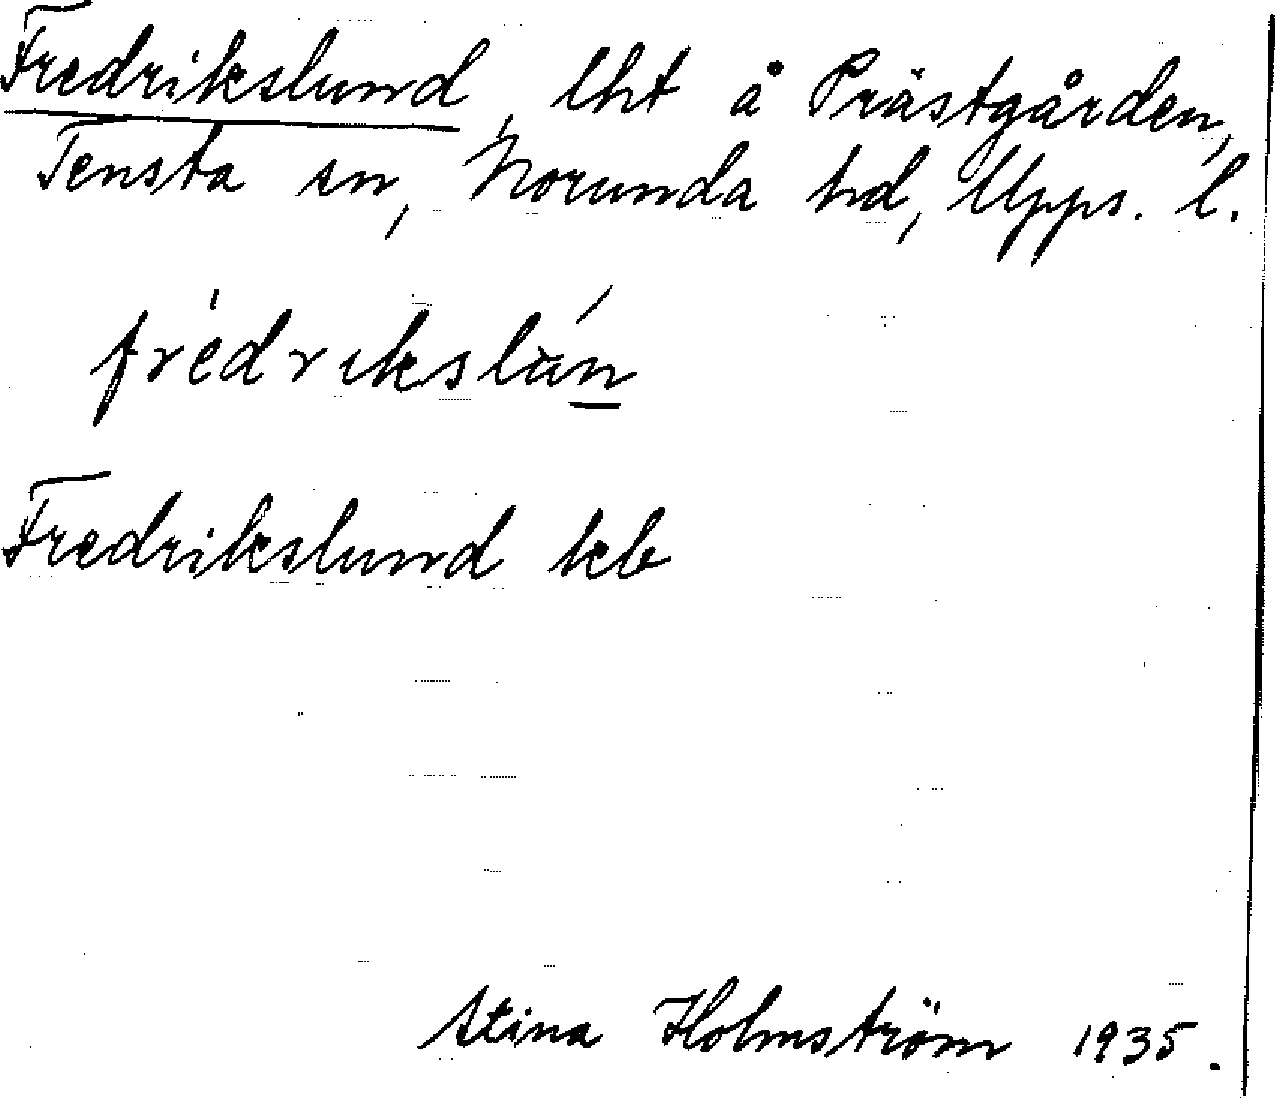 Fredrikslund, lht å Prästgården,
Tensta sn, Norunda hd, Upps. l.
frédrikslún
Fredrikslund kb
Stina Holmström 1935.